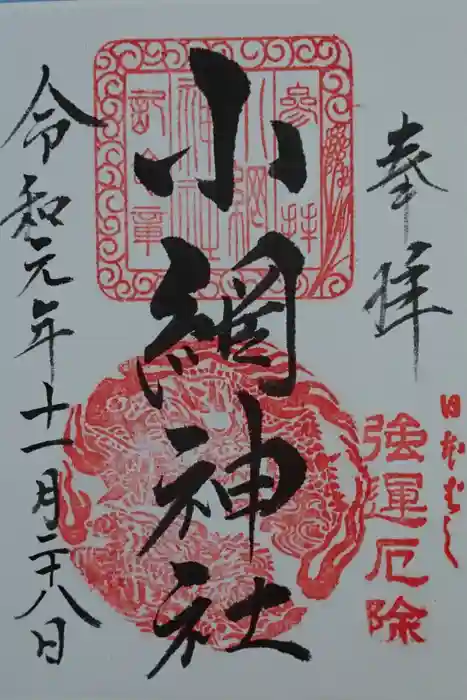 奉拝
日本ばし
強運厄除
参拝
小網
神社
記念章
小網神社
令和元年十一月二十八日